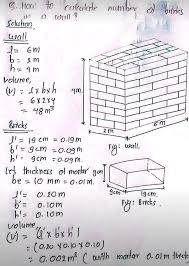 Q. How to calculate number of bricks
in a wall?
Solution,
Wall
l = 6m
b = 2m
h = 4m
Volume,
(V) = l x b x h
= 6 x 2 x 4
= 48 m³
4m.
6m
2m
Fig: Wall.
Bricks
l' = 19 cm = 0.19m
b' = 9cm = 0.09m
h' = 9cm = 0.09m.
Let thickness of mortar
be = 10 mm = 0.01m.
l' = 0.20m
b' = 0.10m
h' = 0.10m
9cm
9cm
19cm.
Fig: Bricks.
Volume,
(V) = l' x b' x h'
= (0.20 x 0.10 x 0.10)
= 0.002 m³ (with mortar 0.01m thick